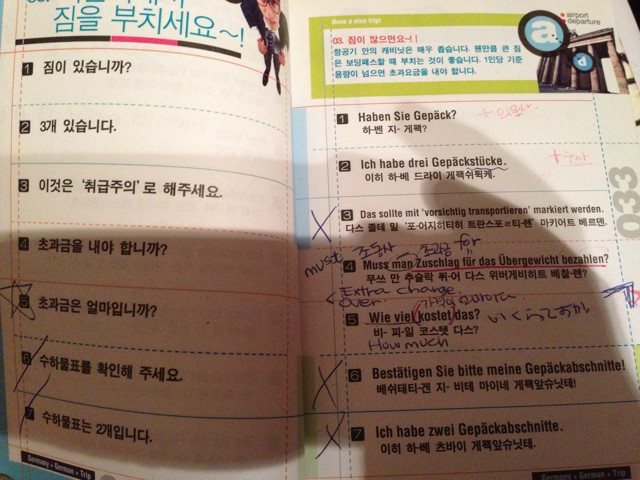 짐을 부치세요~!
1 짐이 있습니까?
2 3개 있습니다.
3 이것은 '취급주의'로 해주세요.
4 초과금을 내야 합니까?
5 초과금은 얼마입니까?
6 수하물표를 확인해 주세요.
7 수하물표는 2개입니다.
Germany + German + Trip
Have a nice trip!
03. 짐이 많으면요~!!
항공기 안의 캐비닛은 매우 좁습니다. 웬만큼 큰 짐
은 보딩패스할 때 부치는 것이 좋습니다. 1인당 기준
용량이 넘으면 초과요금을 내야 합니다.
airport
departure
a
d
033
1 Haben Sie Gepäck?
하-벤 지- 게팩?
2 Ich habe drei Gepäckstücke.
이히 하-베 드라이 게팩쉬튁케.
3 Das sollte mit 'vorsichtig transportieren' markiert werden.
다스 졸테 밑 '포-어지히티히 트란스포르티-렌' 마키어트 베르덴.
must 조동사 초과금 for
4 Muss man Zuschlag für das Übergewicht bezahlen?
무쓰 만 추슐락 퓌-어 다스 위버게비히트 베찰-렌?
Extra charge
over
5 Wie viel kostet das?
いくらですか
비- 피-일 코스텟 다스?
How much
6 Bestätigen Sie bitte meine Gepäckabschnitte!
베쉬태티-겐 지- 비테 마이네 게팩앞슈닛테!
7 Ich habe zwei Gepäckabschnitte.
이히 하-베 츠바이 게팩앞슈닛테.
Germany + German + Trip